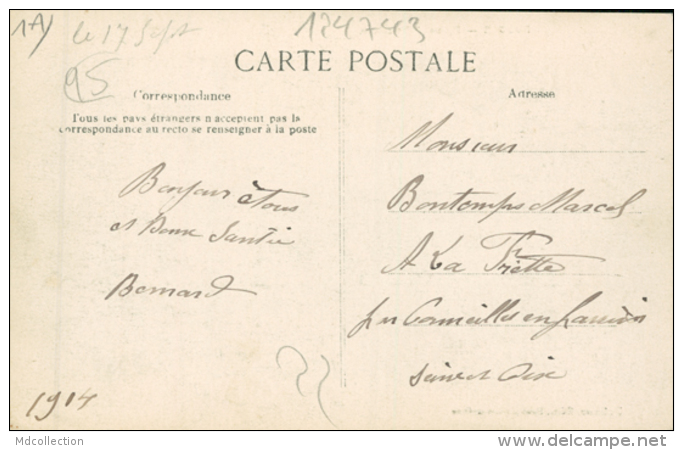 1A)
le 17 Sept
124743
95
CARTE POSTALE
Correspondance
Adresse
Tous les pays étrangers n acceptent pas la
correspondance au recto se renseigner à la poste
Monsieur
Bonjour à Tous
et Bonne Santée
Bernard
Bontemps Marcel
A La Frette
par Cormeilles en Parisis
Seine et Oise
1914
Mdcollection
delcampe.net